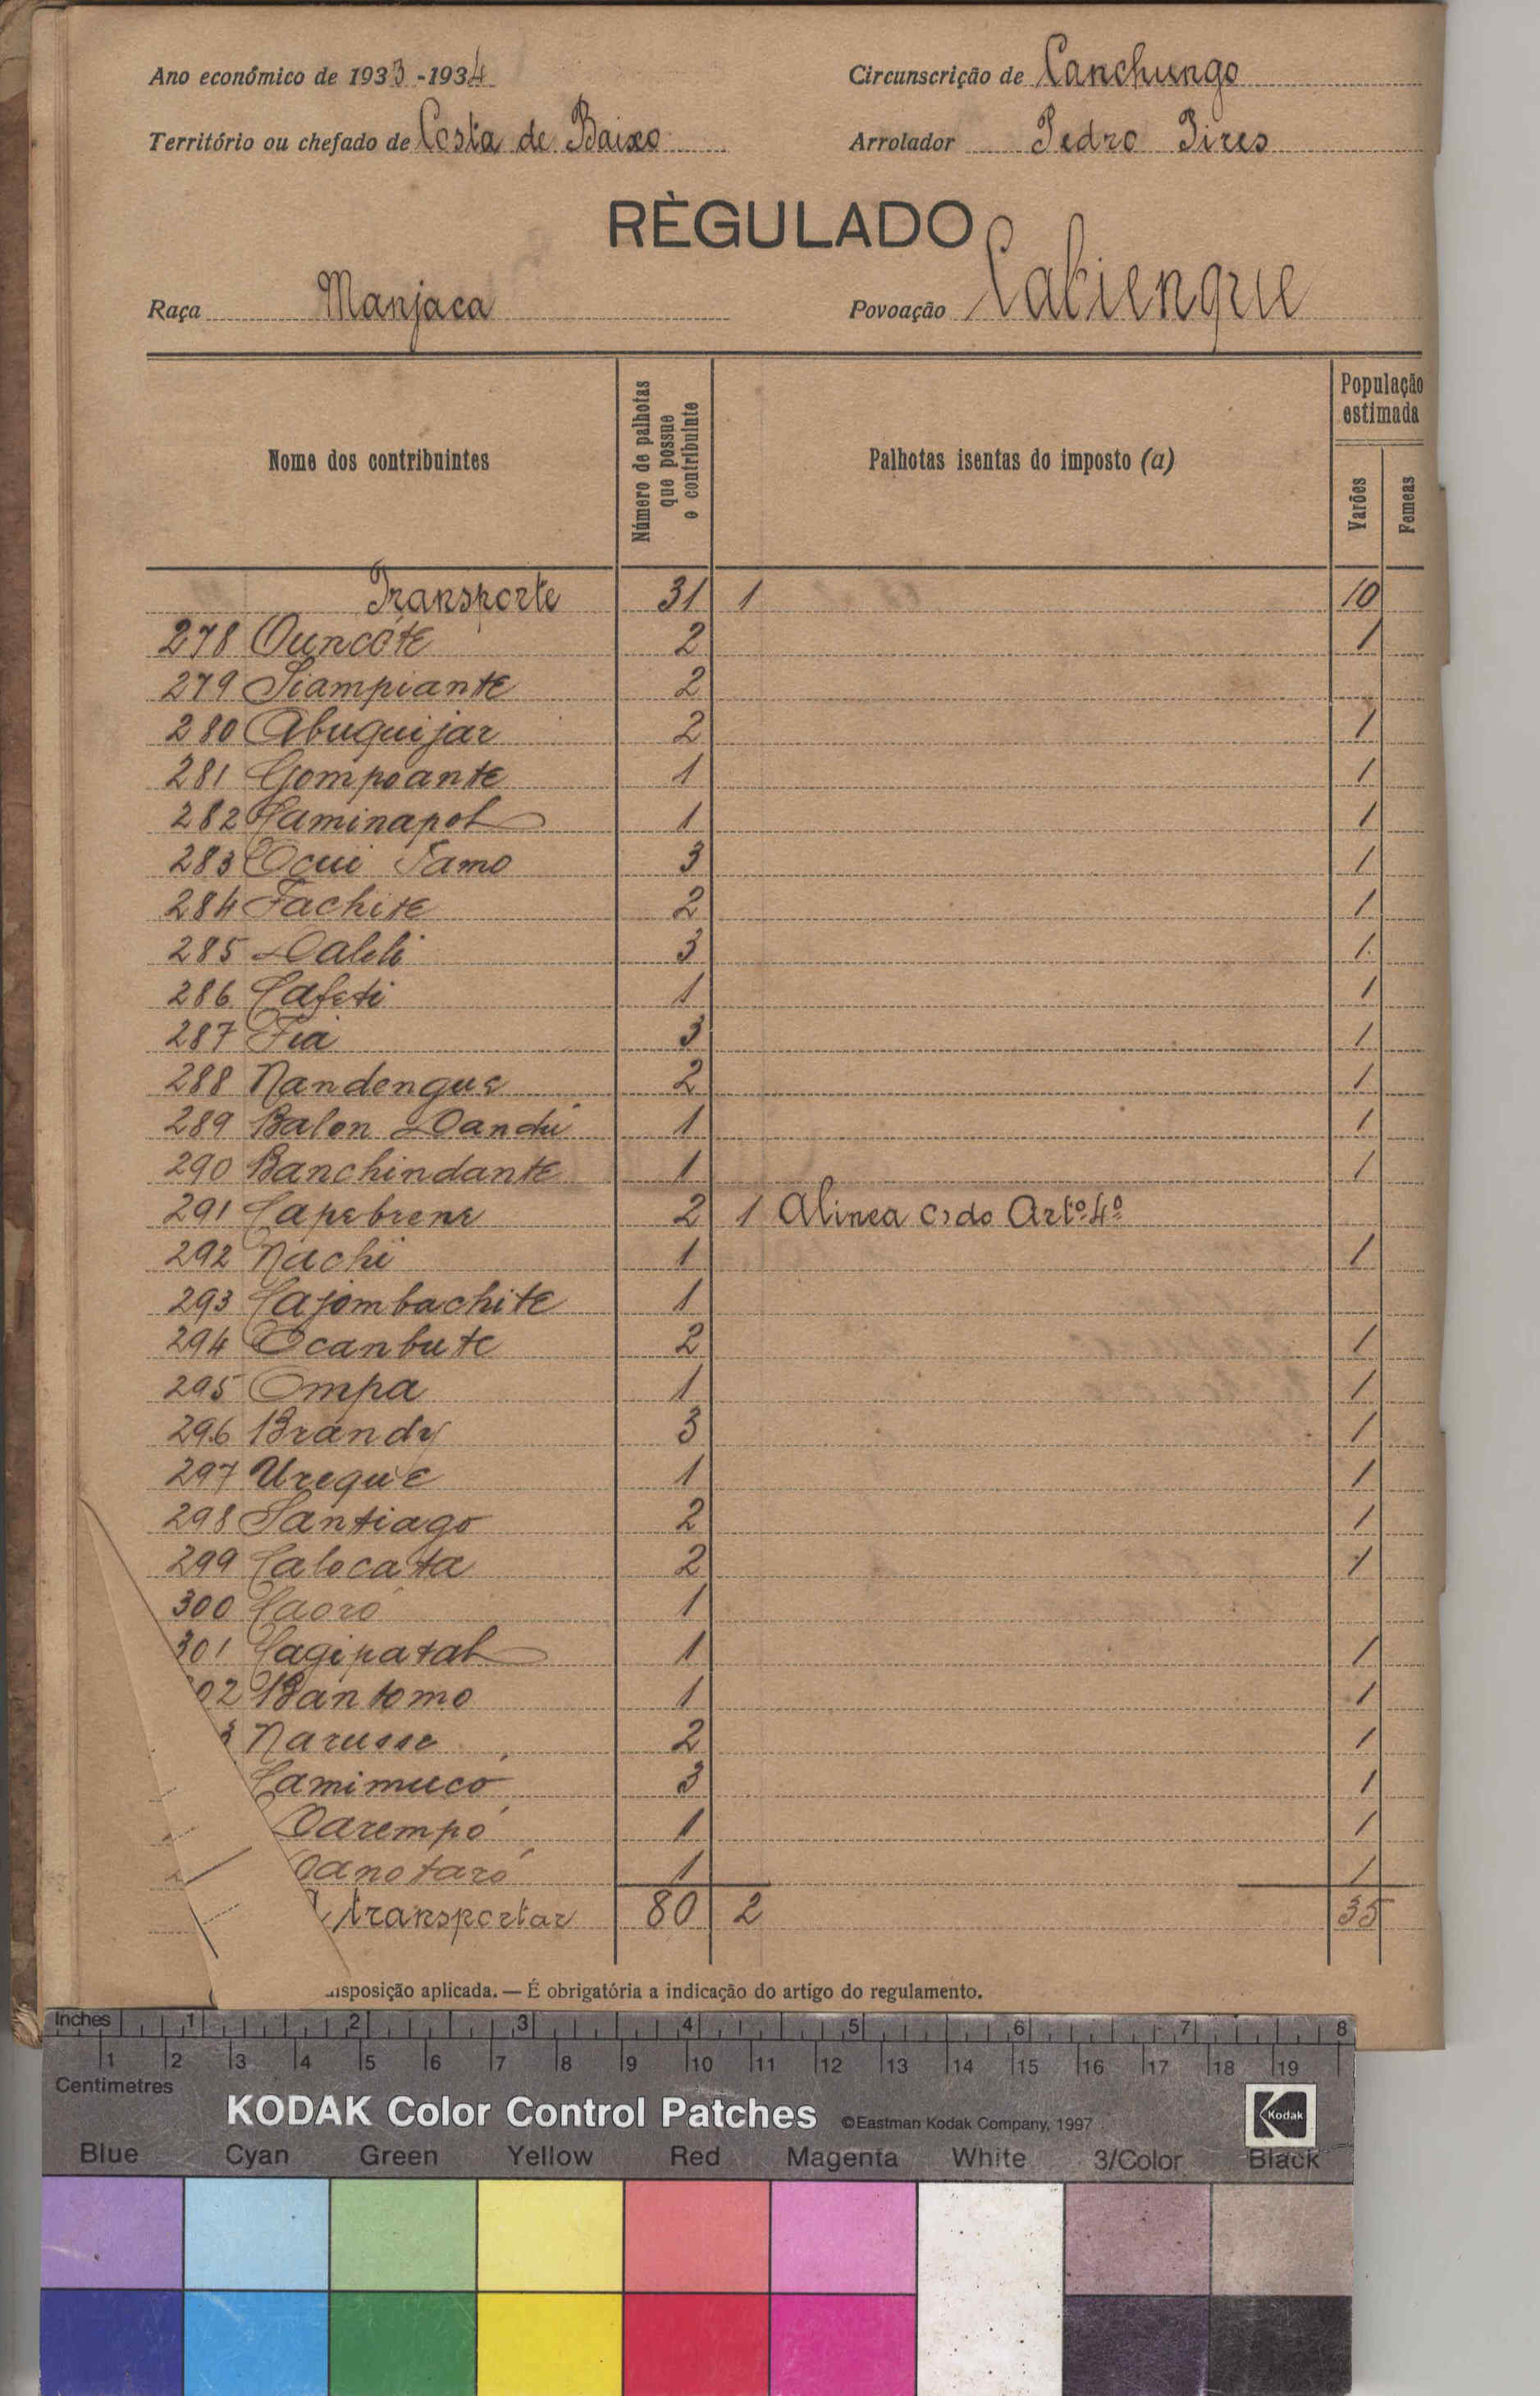 Ano económico de 1933-1934 Circunscrição de Canchungo
Território ou chefado de Costa de Baixo Arrolador Pedro Pires
RÈGULADO
Raça Manjaca Povoação Cabienque
Nome dos contribuintes
Número de palhotas que possue o contribuinte
Palhotas isentas do imposto (a)
População estimada
Varões
Femeas
Transporte 31 1 10
278 Ouncóte 2 1
279 Siampiante 2
280 Abuquijar 2 1
281 Gompoante 1 1
282 Caminapol 1 1
283 Ocui Samo 3 1
284 Fachite 2 1
285 Dalili 3 1
286 Cafeti 1 1
287 Fiá 3 1
288 Nandengue 2 1
289 Balon Dandú 1 1
290 Banchindante 1 1
291 Capebrene 2 1 Alinea c) do Artº 4º
292 Nachi 1 1
293 Cajombachite 1
294 Ocanbute 2 1
295 Ompa 1 1
296 Brandy 3 1
297 Ureque 1 1
298 Santiago 2 1
299 Calocata 2 1
300 Caoró 1
301 Cagipatal 1 1
02 Bantomo 1 1
3 Narusse 2 1
Camimucó 3 1
Darempó 1 1
Canotaró 1 1
transportar 80 2 35
isposição aplicada. — É obrigatória a indicação do artigo do regulamento.
Inches 1 2 3 4 5 6 7 8
1 2 3 4 5 6 7 8 9 10 11 12 13 14 15 16 17 18 19
Centimetres
KODAK Color Control Patches ©Eastman Kodak Company, 1997 Kodak
Blue Cyan Green Yellow Red Magenta White 3/Color Black